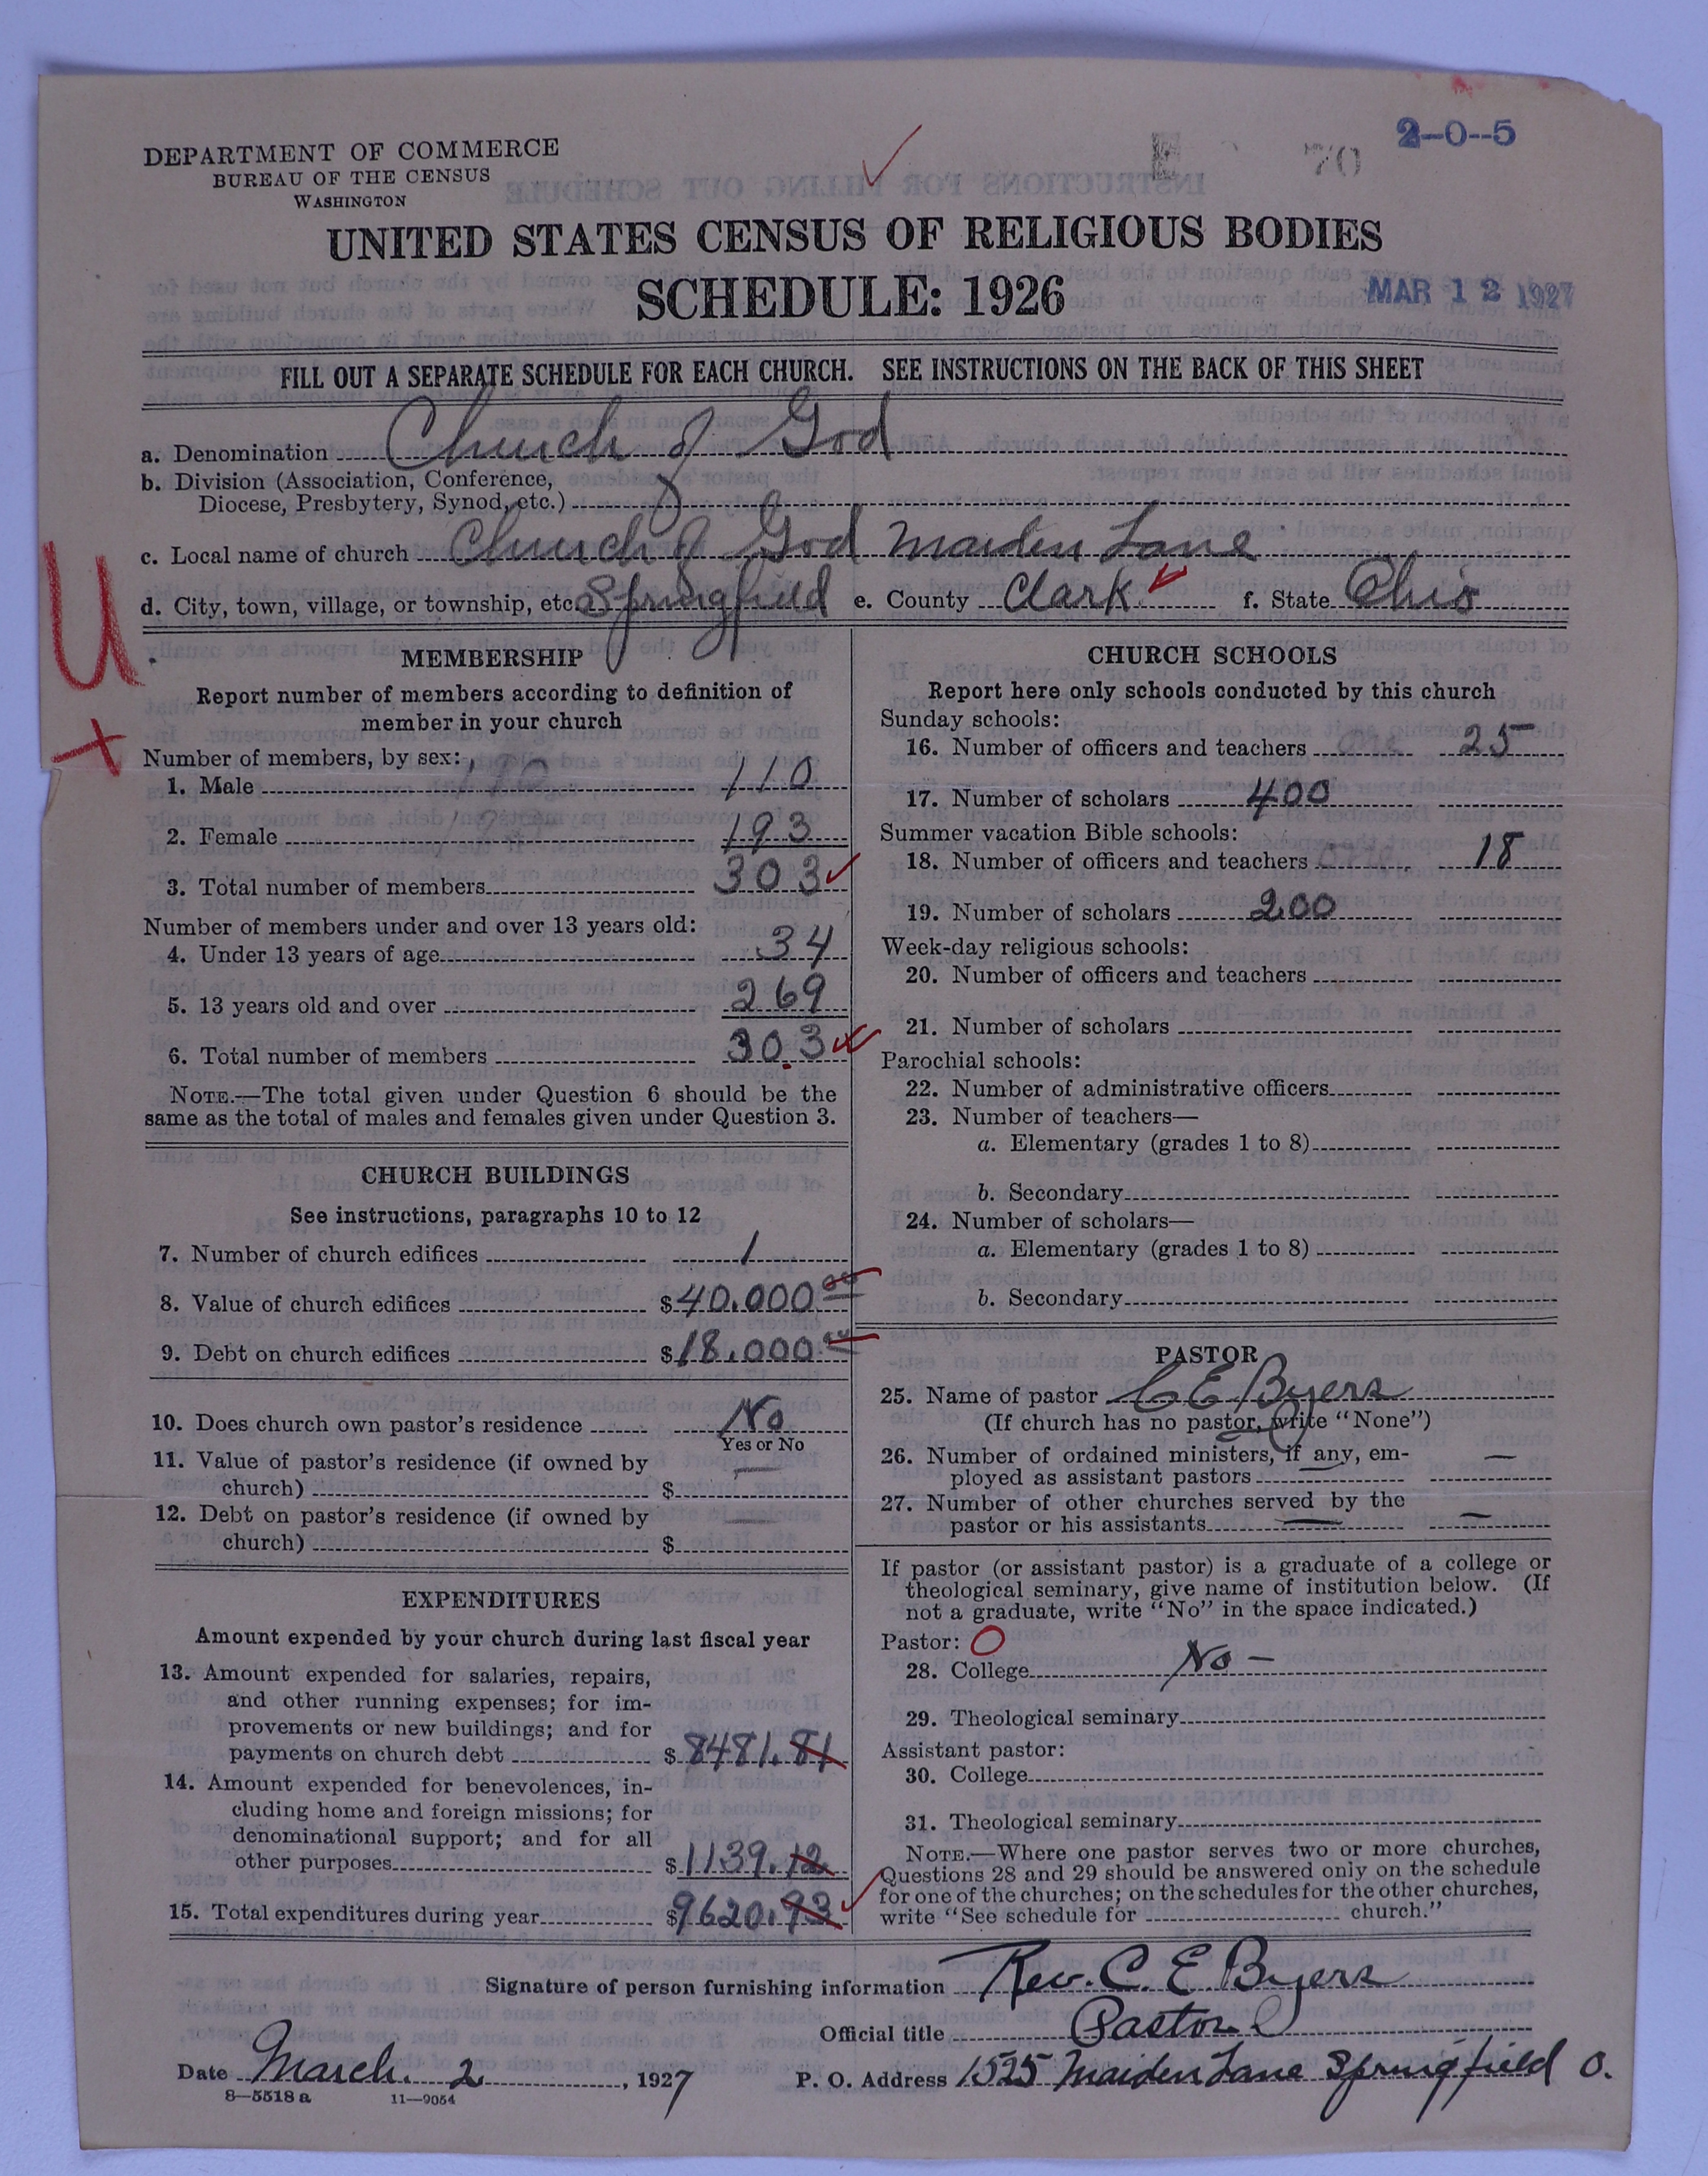 2-0--5
E 70
DEPARTMENT OF COMMERCE
BUREAU OF THE CENSUS
WASHINGTON
UNITED STATES CENSUS OF RELIGIOUS BODIES
SCHEDULE: 1926
MAR 12 1927
FILL OUT A SEPARATE SCHEDULE FOR EACH CHURCH. SEE INSTRUCTIONS ON THE BACK OF THIS SHEET
a. Denomination Church of God
b. Division (Association, Conference,
Diocese, Presbytery, Synod, etc.)
c. Local name of church Church of God Maiden Lane
d. City, town, village, or township, etc. Springfield e. County Clark f. State Ohio
U
x
MEMBERSHIP
Report number of members according to definition of
member in your church
Number of members, by sex:
1. Male 110
2. Female 193
3. Total number of members 303
Number of members under and over 13 years old:
4. Under 13 years of age 34
5. 13 years old and over 269
6. Total number of members 303
NOTE.—The total given under Question 6 should be the
same as the total of males and females given under Question 3.
CHURCH BUILDINGS
See instructions, paragraphs 10 to 12
7. Number of church edifices 1
8. Value of church edifices $40.000 00
9. Debt on church edifices $18.000 00
10. Does church own pastor's residence No
Yes or No
11. Value of pastor's residence (if owned by
church) $ —
12. Debt on pastor's residence (if owned by
church) $ —
EXPENDITURES
Amount expended by your church during last fiscal year
13. Amount expended for salaries, repairs,
and other running expenses; for im-
provements or new buildings; and for
payments on church debt $8481.81
14. Amount expended for benevolences, in-
cluding home and foreign missions; for
denominational support; and for all
other purposes $1139.12
15. Total expenditures during year $9620.93
CHURCH SCHOOLS
Report here only schools conducted by this church
Sunday schools:
16. Number of officers and teachers 25
17. Number of scholars 400
Summer vacation Bible schools:
18. Number of officers and teachers 18
19. Number of scholars 200
Week-day religious schools:
20. Number of officers and teachers
21. Number of scholars
Parochial schools:
22. Number of administrative officers
23. Number of teachers—
a. Elementary (grades 1 to 8)
b. Secondary
24. Number of scholars—
a. Elementary (grades 1 to 8)
b. Secondary
PASTOR
25. Name of pastor C E Byers
(If church has no pastor, write "None")
26. Number of ordained ministers, if any, em-
ployed as assistant pastors —
27. Number of other churches served by the
pastor or his assistants — —
If pastor (or assistant pastor) is a graduate of a college or
theological seminary, give name of institution below. (If
not a graduate, write "No" in the space indicated.)
Pastor: O
28. College No -
29. Theological seminary
Assistant pastor:
30. College
31. Theological seminary
NOTE.—Where one pastor serves two or more churches,
Questions 28 and 29 should be answered only on the schedule
for one of the churches; on the schedules for the other churches,
write "See schedule for church."
Signature of person furnishing information Rev. C. E. Byers
Official title Pastor
Date March. 2, 1927 P. O. Address 1525 Maiden Lane Springfield O.
8—5518 a 11—9054